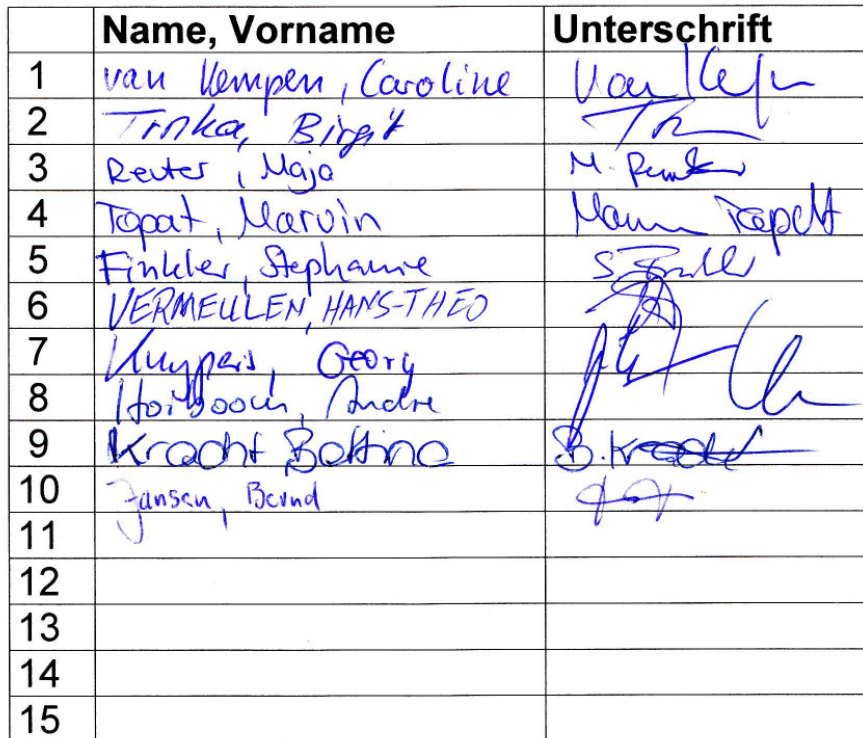 Name, Vorname Unterschrift
1 van Kempen, Caroline
2 Trnka, Birgit
3 Reuter, Maja M. Reuter
4 Tapat, Marvin
5 Finkler, Stephanie S. Finkler
6 VERMEULEN, HANS-THEO
7 Kuypers, Georg
8 Andre
9 Kracht Bettina B. Kracht
10 Jansen, Bernd
11
12
13
14
15